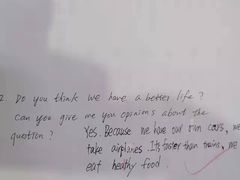 2. Do you think we have a better life?
can you give me you opinions about the
question?
Yes. Because we have our own cars, we
take airplanes. It's faster than trains, we
eat heathy food.